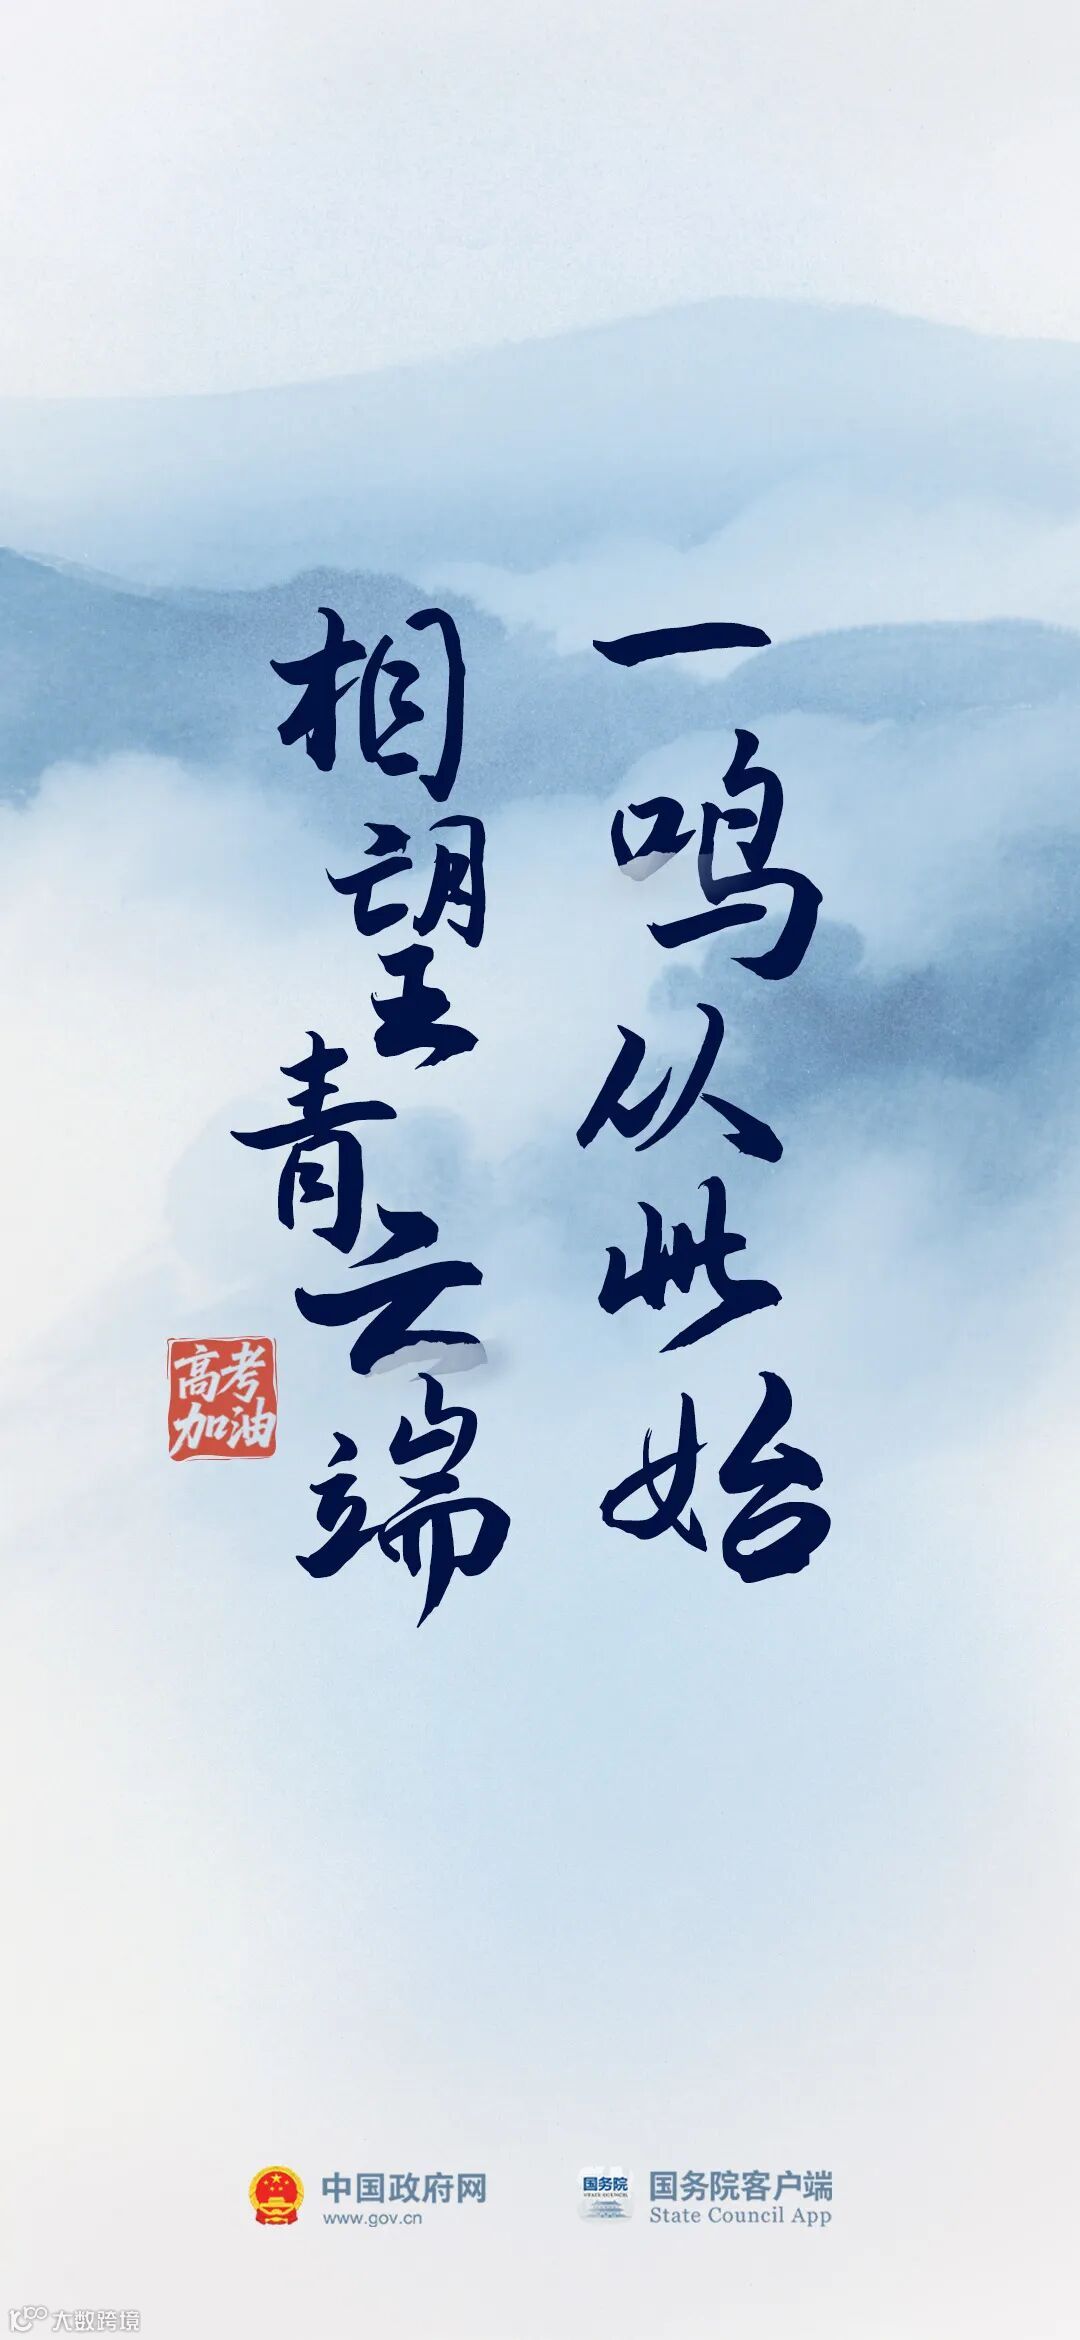 一鸣从此始
相望青云端
高考
加油
中国政府网
www.gov.cn
国务院
STATE COUNCIL
国务院客户端
State Council App
大数跨境